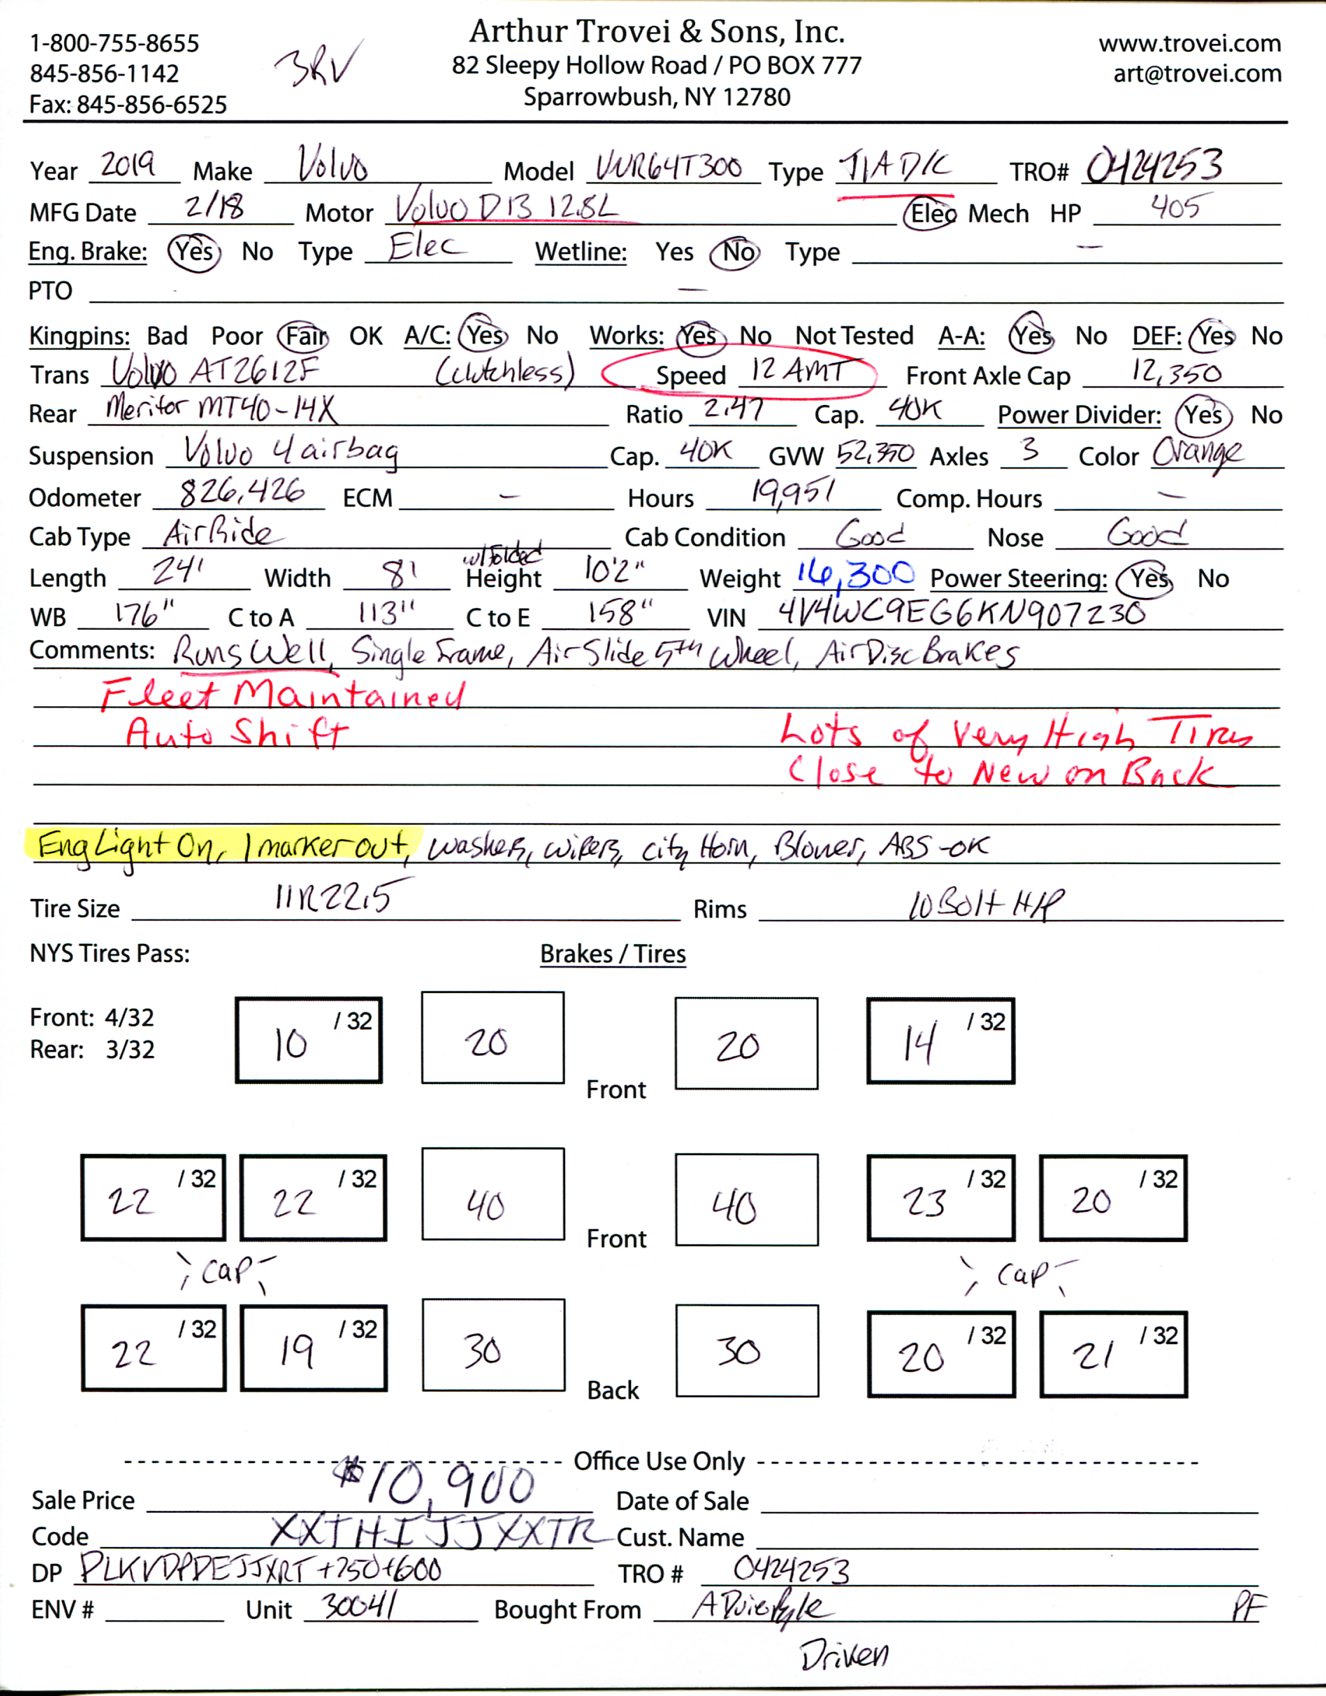 Arthur Trovei & Sons, Inc.
1-800-755-8655 3RV 82 Sleepy Hollow Road / PO BOX 777 www.trovei.com
845-856-1142 Sparrowbush, NY 12780 art@trovei.com
Fax: 845-856-6525
Year 2019 Make Volvo Model VVR64T300 Type T/A D/C TRO# 0424253
MFG Date 2/18 Motor Volvo D13 12.8L Elec Mech HP 405
Eng. Brake: Yes No Type Elec Wetline: Yes No Type —
PTO —
Kingpins: Bad Poor Fair OK A/C: Yes No Works: Yes No Not Tested A-A: Yes No DEF: Yes No
Trans Volvo AT2612F (Clutchless) Speed 12 AMT Front Axle Cap 12,350
Rear Meritor MT40-14X Ratio 2.47 Cap. 40K Power Divider: Yes No
Suspension Volvo 4 airbag Cap. 40K GVW 52,350 Axles 3 Color Orange
Odometer 826,426 ECM — Hours 19,951 Comp. Hours —
Cab Type AirRide Cab Condition Good Nose Good
Length 24' Width 8' w/Folded Height 10'2" Weight 16,300 Power Steering: Yes No
WB 176" C to A 113" C to E 158" VIN 4V4WC9EG6KN907230
Comments: Runs Well, Single Frame, Air Slide 5th Wheel, Air Disc Brakes
Fleet Maintained
Auto Shift Lots of Very High Tires
Close to New on Back
Eng Light On, 1 marker out, washers, wipers, city Horn, Blower, ABS-OK
Tire Size 11R22.5 Rims 10 Bolt H/P
NYS Tires Pass: Brakes / Tires
Front: 4/32
Rear: 3/32
10 /32 20 Front 20 14 /32
22 /32 22 /32 40 Front 40 23 /32 20 /32
Cap Cap
22 /32 19 /32 30 Back 30 20 /32 21 /32
Office Use Only
Sale Price $10,900 Date of Sale
Code XXTHIJJXXTR Cust. Name
DP PLKVDPDEJJXRT+750+600 TRO # 0424253
ENV # Unit 30041 Bought From PF
Driven